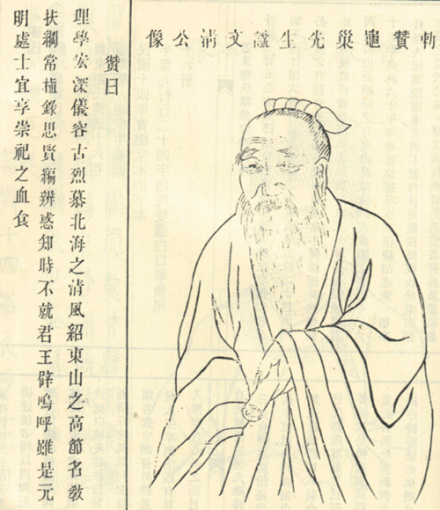 勅贊龜巢先生謚文清公像
贊曰
理學宏深儀容古烈慕北海之清風紹東山之高節名敎
扶綱常植錄思賢編辨惑知時不就君王辟嗚呼雖是元
明處士宜享崇祀之血食